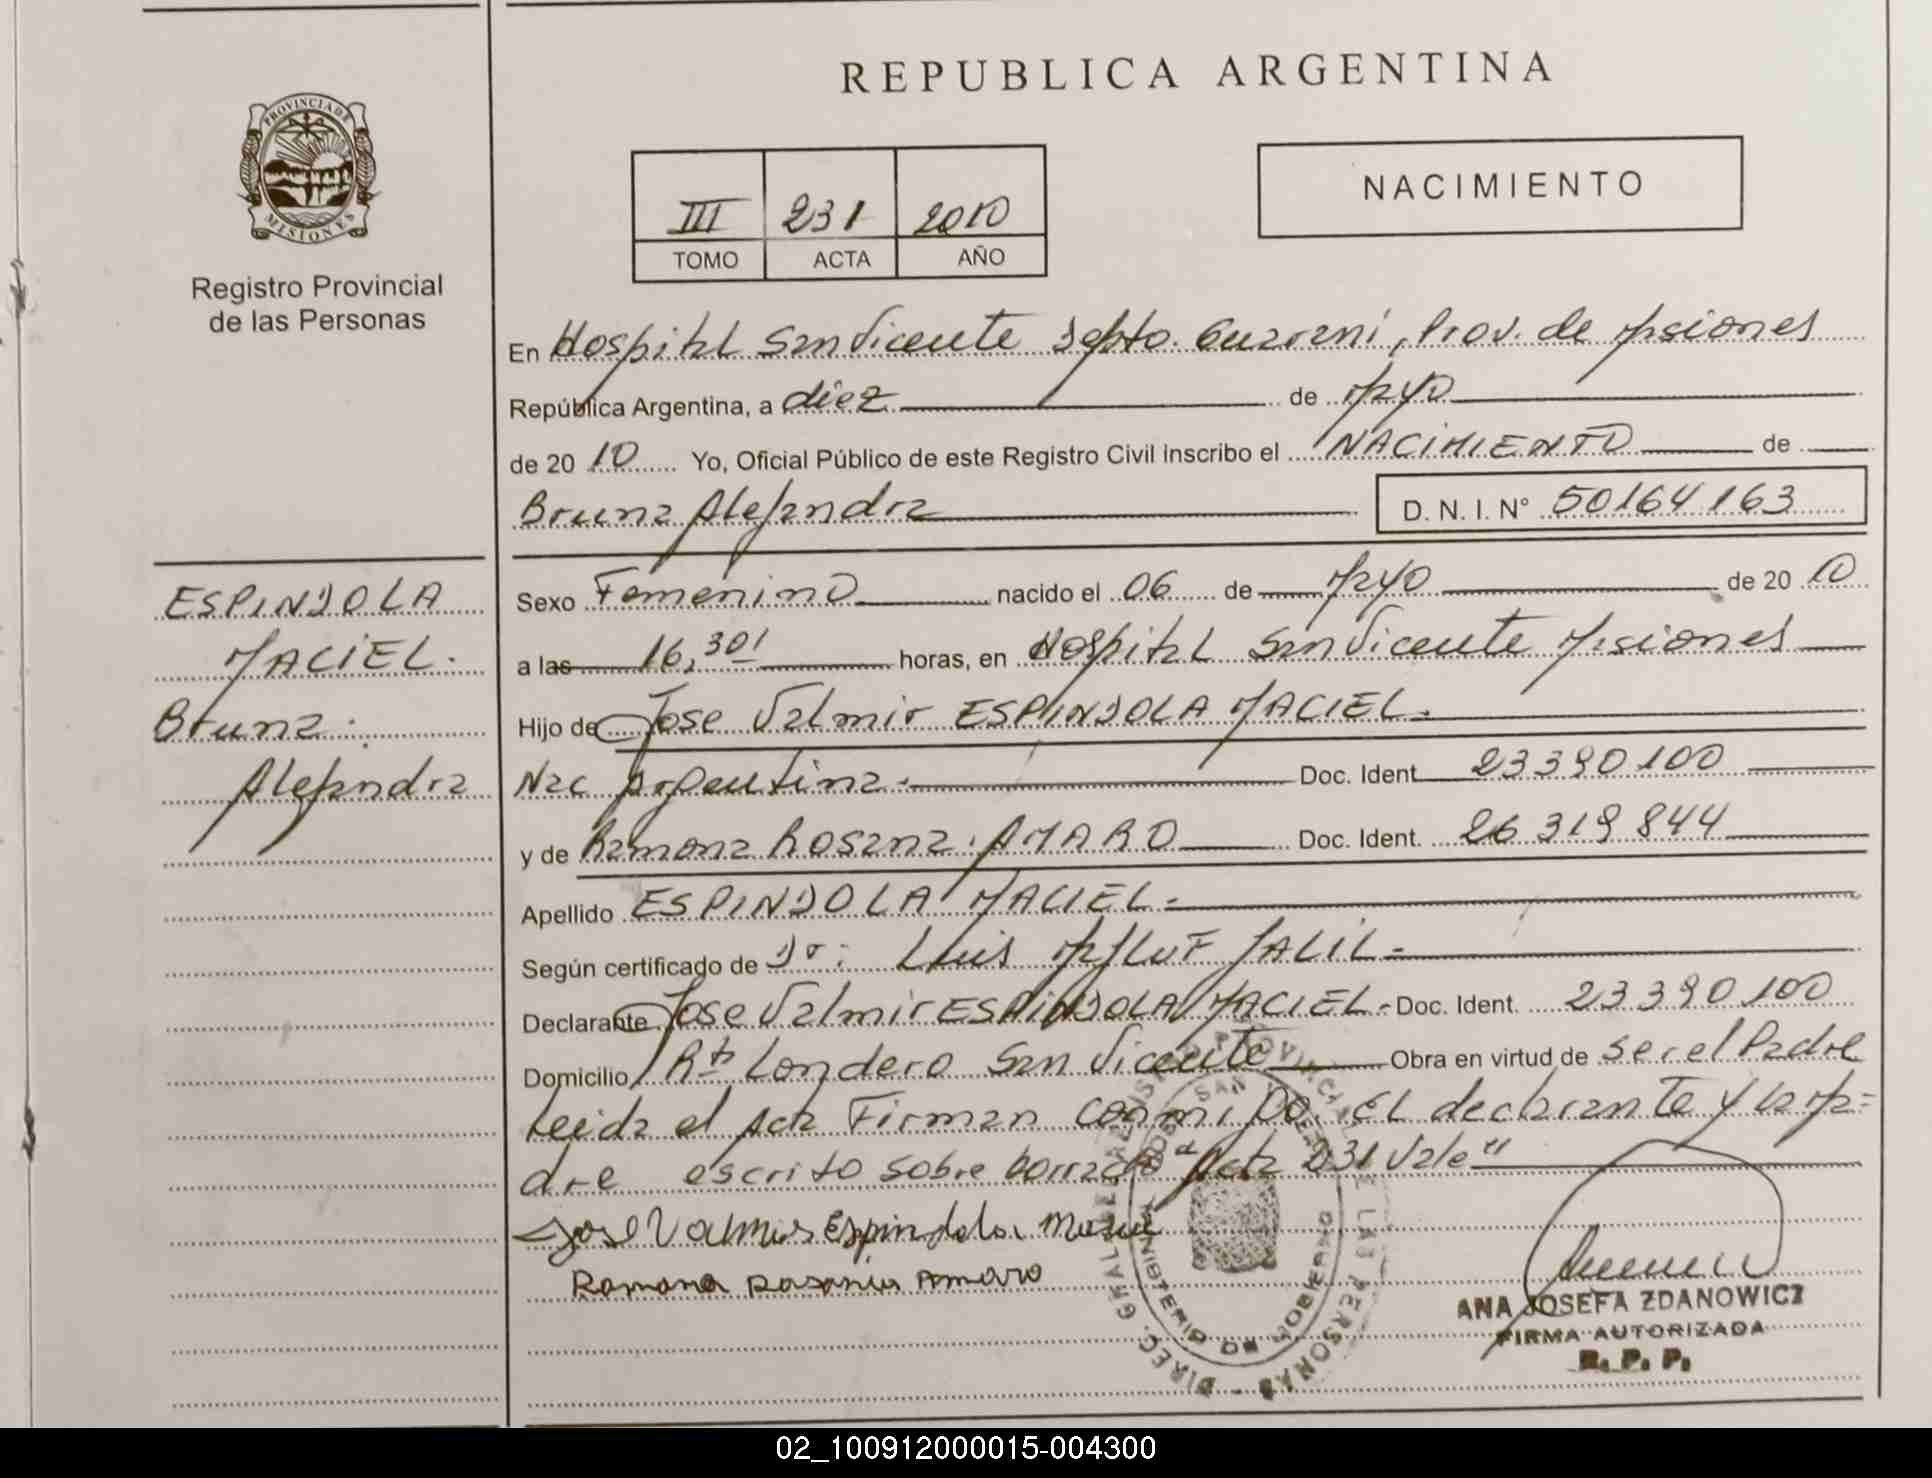 REPUBLICA ARGENTINA
PROVINCIA DE
MISIONES
Registro Provincial
de las Personas
III 231 2010
TOMO ACTA AÑO
NACIMIENTO
En Hospital San Vicente Depto. Guarani, Prov. de Misiones
República Argentina, a diez de Mayo
de 20 10 Yo, Oficial Público de este Registro Civil inscribo el NACIMIENTO de
Bruna Alejandra D. N. I. Nº 50164163
ESPINDOLA
MACIEL.
Bruna
Alejandra
Sexo Femenino nacido el 06 de Mayo de 20 10
a las 16,30' horas, en Hospital San Vicente Misiones
Hijo de Jose Valmir ESPINDOLA MACIEL.
Nac Argentina. Doc. Ident. 23390100
y de Ramona Rosana. AMARO Doc. Ident. 26319844
Apellido ESPINDOLA MACIEL.
Según certificado de Dr: Luis JALIL
Declarante Jose Valmir ESPINDOLA MACIEL. Doc. Ident. 23390100
Domicilio Londero San Vicente Obra en virtud de ser el Padre
Leida el Acta Firman conmigo. El declarante y la Ma=
dre escrito sobre borrado "Acta 231 Vale"
Jose Valmir Espindola
Ramona Rosana Amaro
DIREC. GRAL. DEL REGISTRO PROVINCIAL DE LAS PERSONAS
MINISTERIO DE GOBIERNO
ANA JOSEFA ZDANOWICZ
FIRMA AUTORIZADA
R. P. P.
02_100912000015-004300